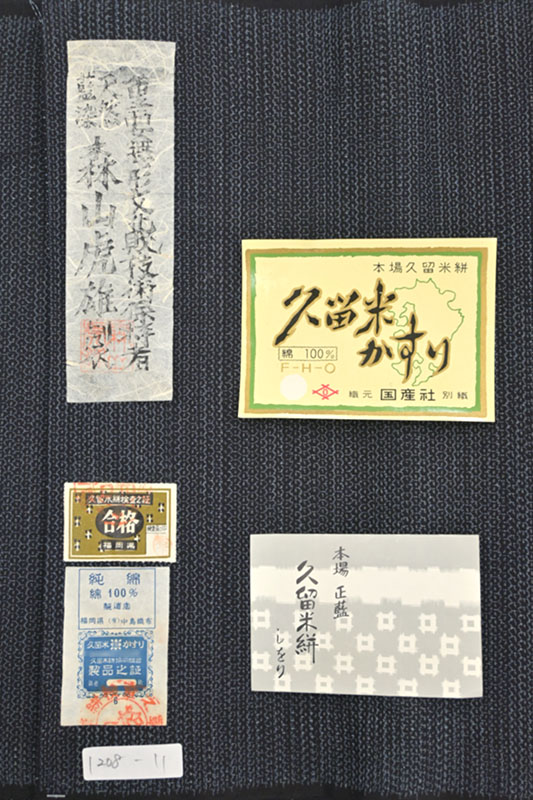 重要無形文化財技術保持者
藍染 森山虎雄
本場久留米絣
久留米
かすり
綿 100%
F-H-O
織元 国産社 別織
久留米絣検査之証
合格
福岡県
純綿
綿 100%
福岡県 (有)中島織布
久留米かすり
製品之証
本場 正藍
久留米絣
しをり
1208-11